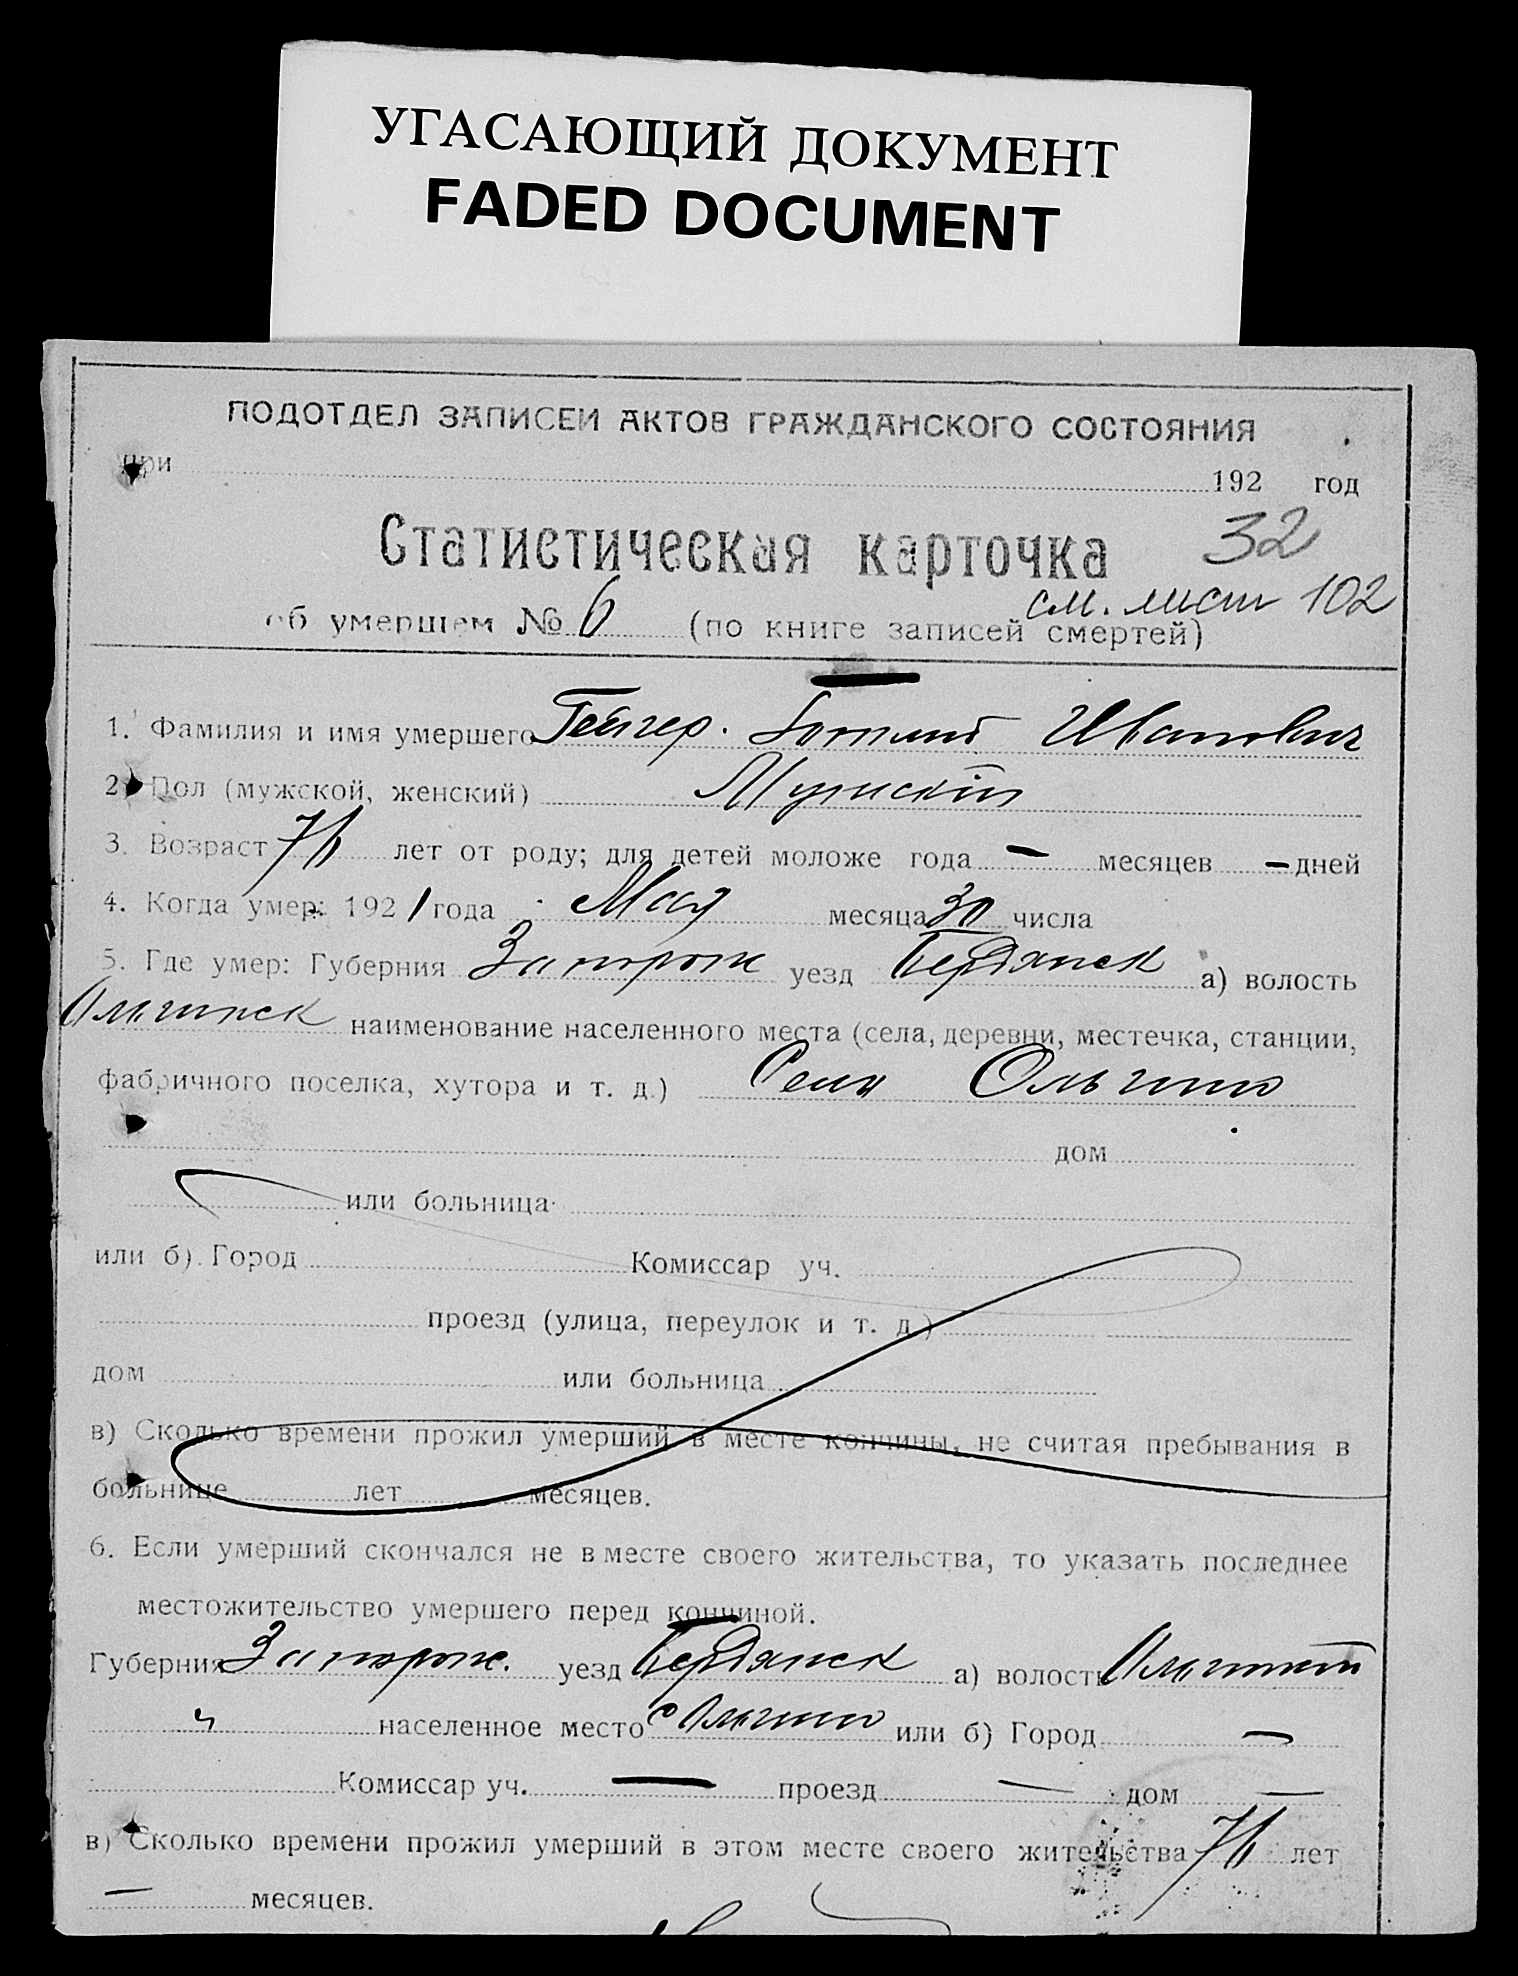 УГАСАЮЩИЙ ДОКУМЕНТ
FADED DOCUMENT
ПОДОТДЕЛ ЗАПИСЕЙ АКТОВ ГРАЖДАНСКОГО СОСТОЯНИЯ
при 192 год
Статистическая карточка 32
см. лист 102
об умершем № 6 (по книге записей смертей)
1. Фамилия и имя умершего Гейгер. Готлиб Иванович
2. Пол (мужской, женский) Мужской
3. Возраст 76 лет от роду; для детей моложе года — месяцев — дней
4. Когда умер: 1921 года Мая месяца 30 числа
5. Где умер: Губерния Запорож уезд Бердянск а) волость
Ольгинск наименование населенного места (села, деревни, местечка, станции,
фабричного поселка, хутора и т. д.) Село Ольгино
дом
или больница
или б) Город Комиссар уч.
проезд (улица, переулок и т. д.)
дом или больница
в) Сколько времени прожил умерший в месте кончины, не считая пребывания в
больнице лет месяцев.
6. Если умерший скончался не в месте своего жительства, то указать последнее
местожительство умершего перед кончиной.
Губерния Запорож. уезд Бердянск а) волость
населенное место с Ольгино или б) Город —
Комиссар уч. — проезд — дом —
в) Сколько времени прожил умерший в этом месте своего жительства 76 лет
— месяцев.